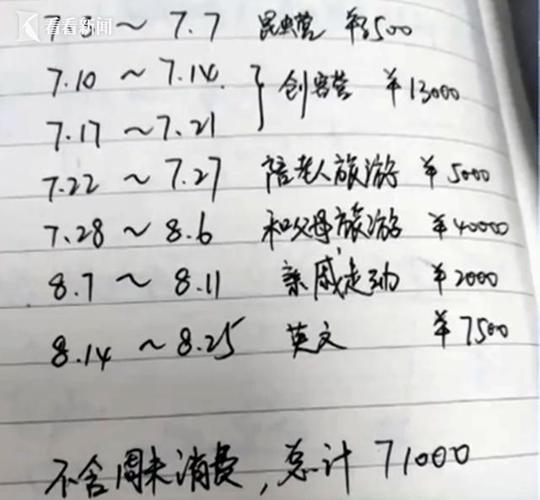 看看新闻
7.3 ~ 7.7 昆虫营 ¥3500
7.10 ~ 7.14
} 创客营 ¥13000
7.17 ~ 7.21
7.22 ~ 7.27 陪老人旅游 ¥5000
7.28 ~ 8.6 和父母旅游 ¥40000
8.7 ~ 8.11 亲戚走动 ¥2000
8.14 ~ 8.25 英文 ¥7500
不含周末消费，总计 71000